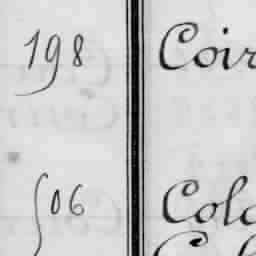 198 Coir
506 Colo